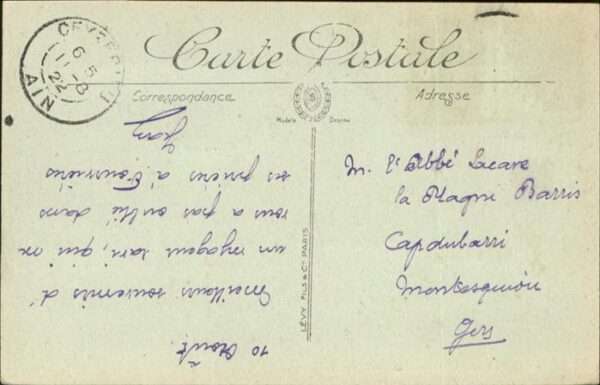 CEYZERIAT
6 5
11 -8
22
AIN
Carte Postale
Correspondance
Adresse
Modèle Déposé
LÉVY FILS & Cie PARIS
10 Août.
Meilleurs souvenirs d'
un voyageur ravi, qui ne
vous a pas oublié dans
ses prières à Fourvière
Jean
M. l'Abbé Lacave
la Plagne Barris
Capdubarri
Montesquiou
Gers